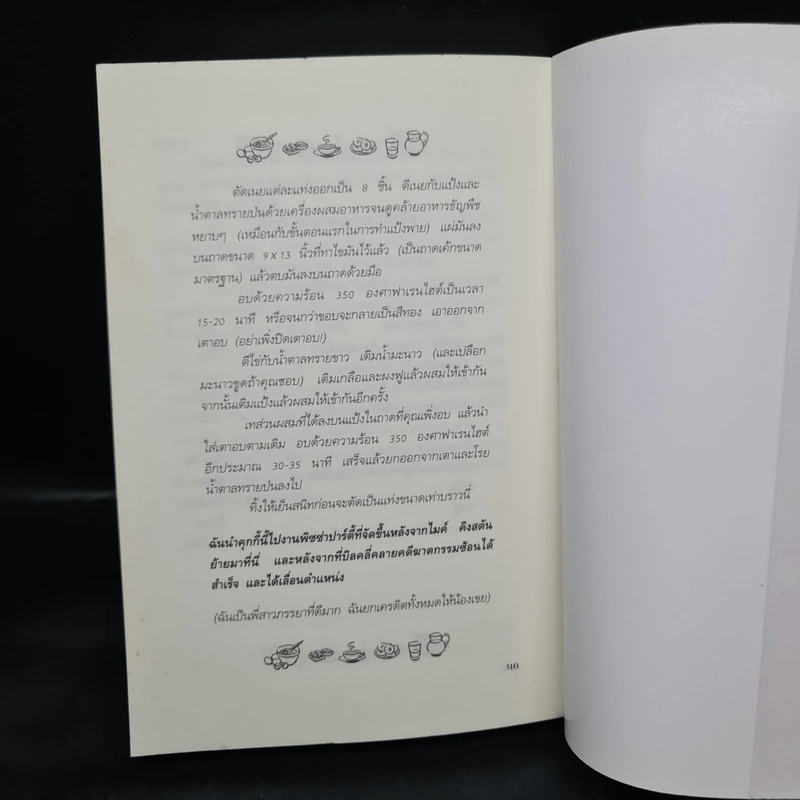 ตัดเนยแต่ละแท่งออกเป็น 8 ชิ้น ตีเนยกับแป้งและ
น้ำตาลทรายป่นด้วยเครื่องผสมอาหารจนดูคล้ายอาหารธัญพืช
หยาบๆ (เหมือนกับขั้นตอนแรกในการทำแป้งพาย) แผ่มันลง
บนถาดขนาด 9 X 13 นิ้วที่ทาไขมันไว้แล้ว (เป็นถาดเค้กขนาด
มาตรฐาน) แล้วตบมันลงบนถาดด้วยมือ
อบด้วยความร้อน 350 องศาฟาเรนไฮต์เป็นเวลา
15-20 นาที หรือจนกว่าขอบจะกลายเป็นสีทอง เอาออกจาก
เตาอบ (อย่าเพิ่งปิดเตาอบ!)
ตีไข่กับน้ำตาลทรายขาว เติมน้ำมะนาว (และเปลือก
มะนาวขูดถ้าคุณชอบ) เติมเกลือและผงฟูแล้วผสมให้เข้ากัน
จากนั้นเติมแป้งแล้วผสมให้เข้ากันอีกครั้ง
เทส่วนผสมที่ได้ลงบนแป้งในถาดที่คุณเพิ่งอบ แล้วนำ
ใส่เตาอบตามเดิม อบด้วยความร้อน 350 องศาฟาเรนไฮต์
อีกประมาณ 30-35 นาที เสร็จแล้วยกออกจากเตาและโรย
น้ำตาลทรายป่นลงไป
ทิ้งให้เย็นสนิทก่อนจะตัดเป็นแท่งขนาดเท่าบราวนี่
ฉันนำคุกกี้นี้ไปงานพิซซ่าปาร์ตี้ที่จัดขึ้นหลังจากไมค์ คิงสตัน
ย้ายมาที่นี่ และหลังจากที่บิลคลี่คลายคดีฆาตกรรมซ้อนได้
สำเร็จ และได้เลื่อนตำแหน่ง
(ฉันเป็นพี่สาวภรรยาที่ดีมาก ฉันยกเครดิตทั้งหมดให้น้องเขย)
310